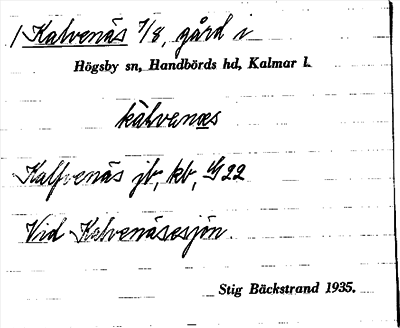 1 Kalvenäs 7/8, gård i
Högsby sn, Handbörds hd, Kalmar l.
kàlvenæs
Kalfvenäs jb, kb, 22
Vid Kalvenäsesjön.
Stig Bäckstrand 1935.